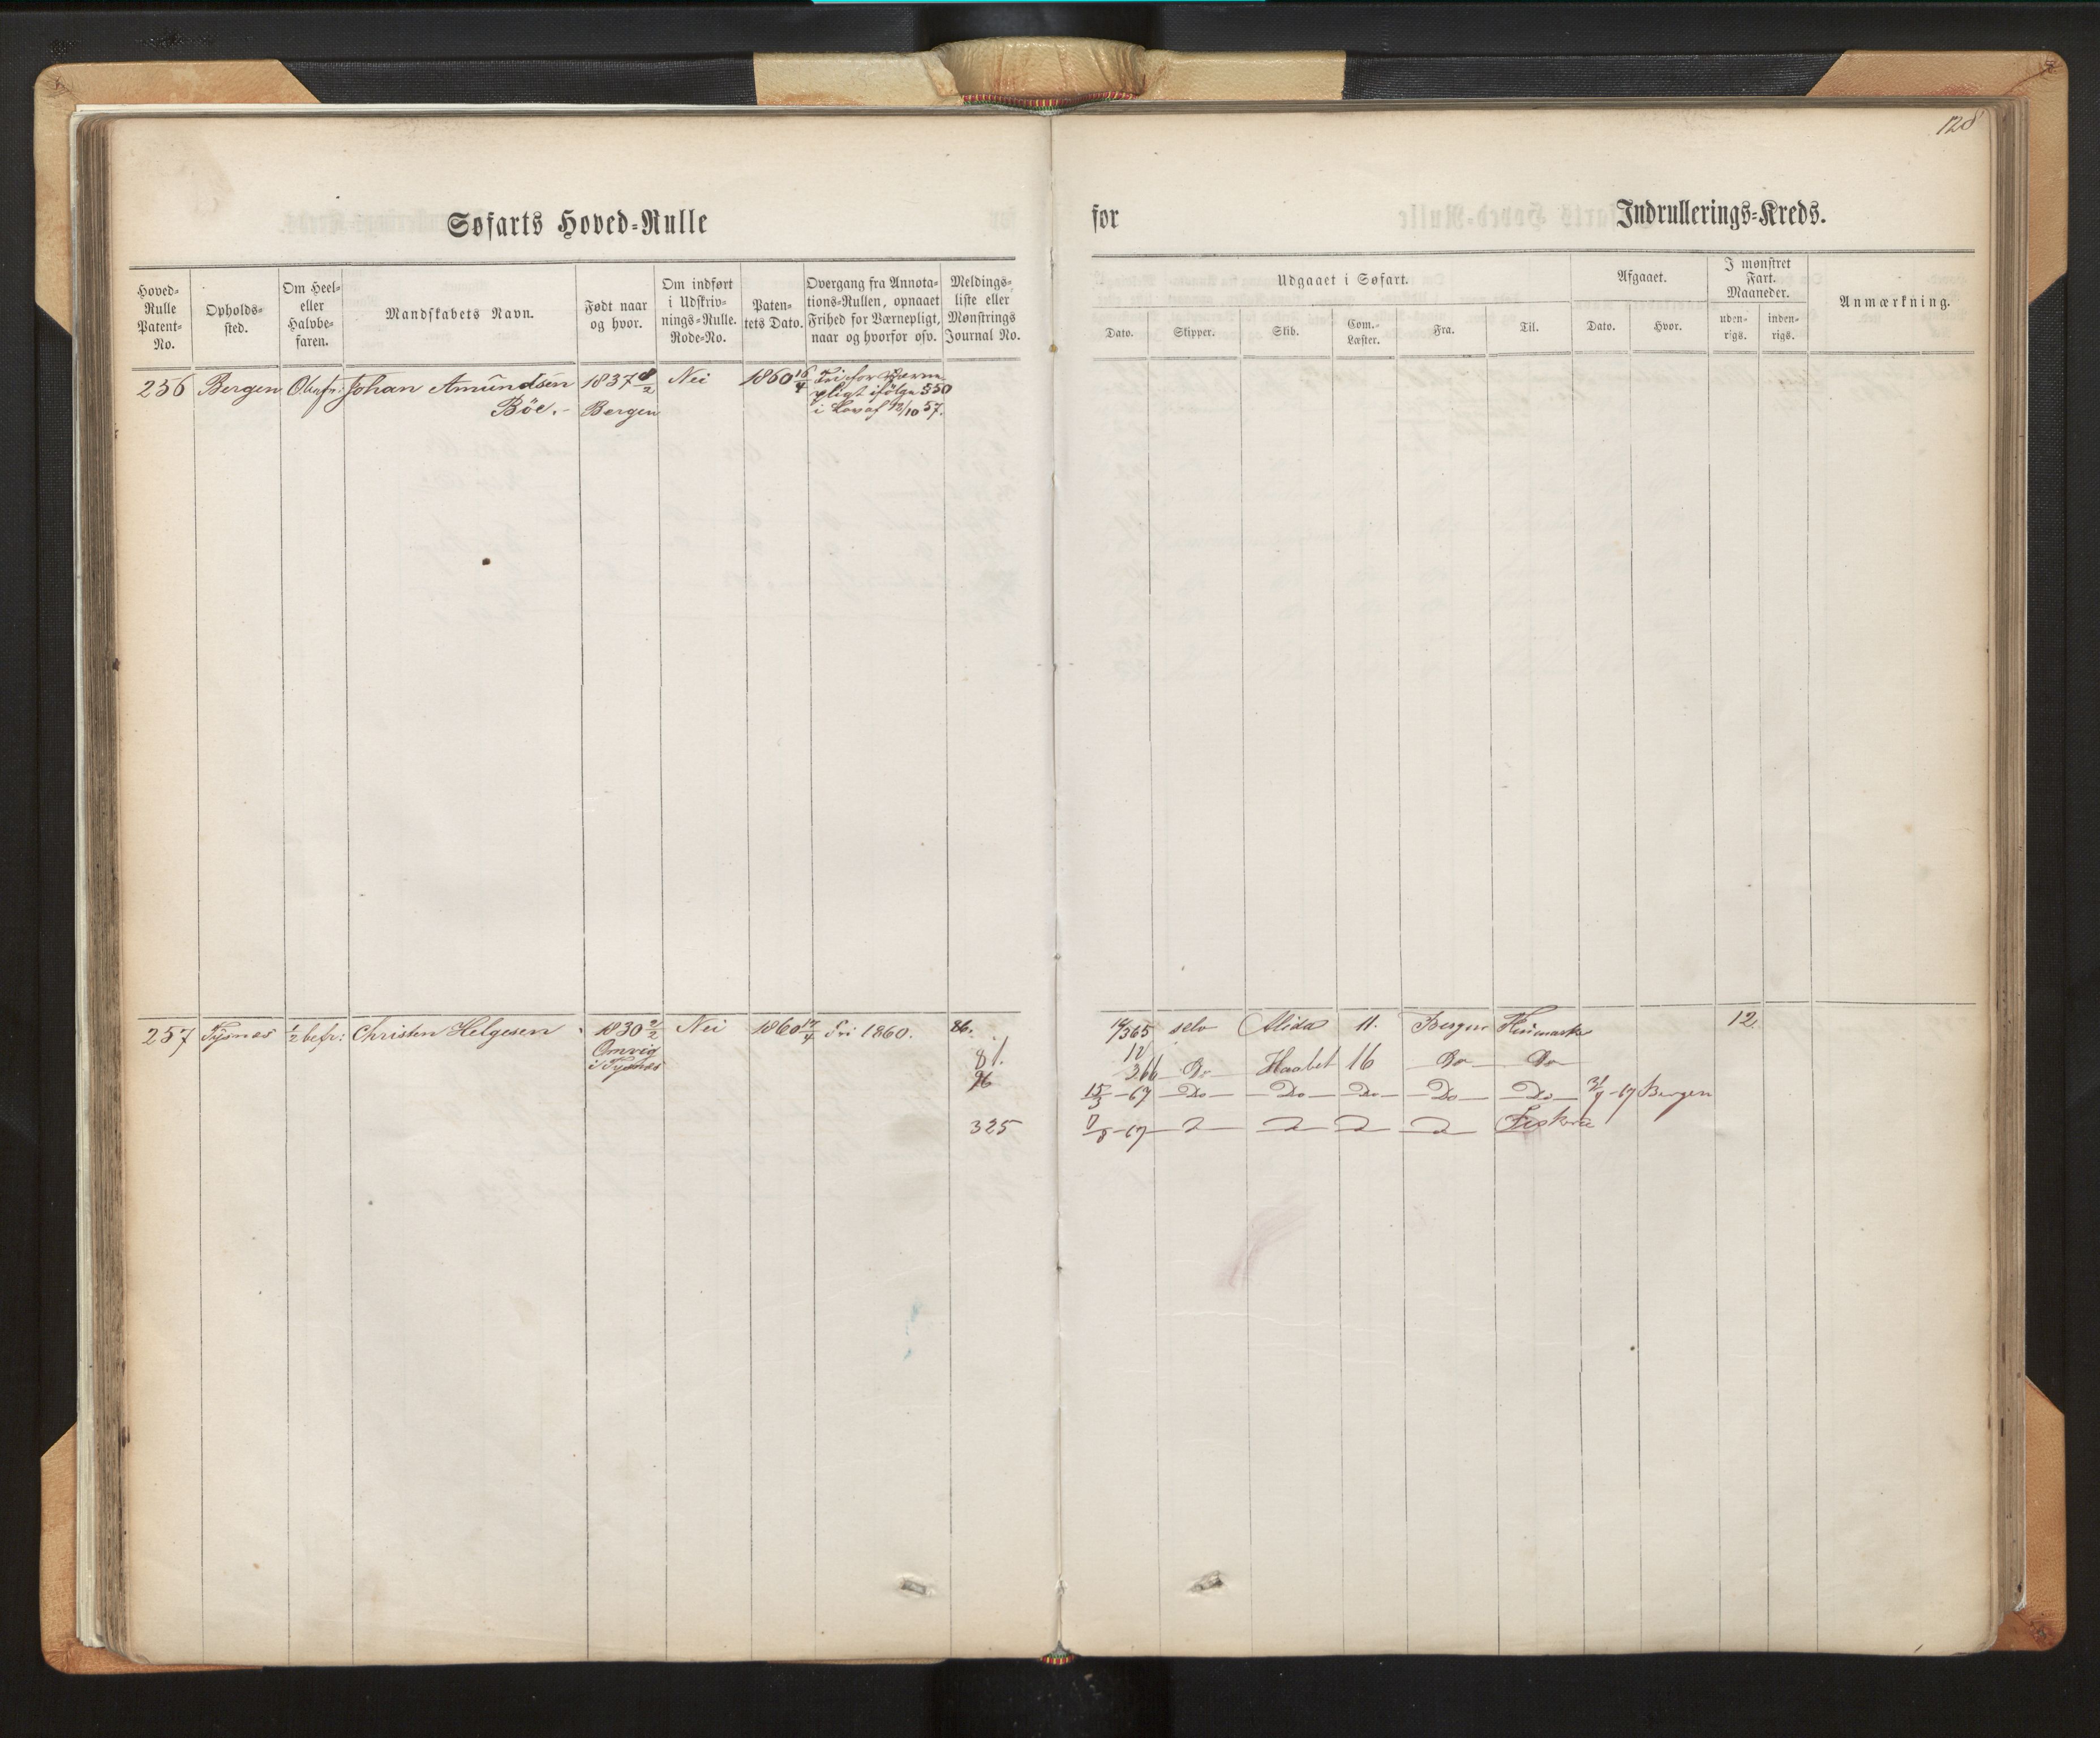 128
Søfarts Hoved-Rulle
for
Indrullerings-Kreds.
Hoved-
Rulle
Patent-
No.
Opholds-
sted.
Om Heel-
eller
Halvbe-
faren.
Mandskabets Navn.
Født naar
og hvor.
Om indført
i Udskriv-
nings-Rulle.
Rode-No.
Paten-
tets Dato.
Overgang fra Annota-
tions-Rullen, opnaaet
Frihed for Værnepligt,
naar og hvorfor osv.
Meldings-
liste eller
Mønstrings
Journal No.
Udgaaet i Søfart.
Dato.
Skipper.
Skib.
Com.-
Læster.
Fra.
Til.
Afgaaet.
Dato.
Hvor.
I mønstret
Fart.
Maaneder.
uden-
rigs.
inden-
rigs.
Anmærkning.
256 Bergen Johan Amundsen 1837 8/2 Nei 1860 16/4 Fri for Værne
Böe.- Bergen pligt ifölge §50
i Lov af 12/10 57.
257 Tysnes 1/2 befr: Christen Helgesen 1830 2/2 Nei 1860 17/4 fri 1860. 86.
Omvig
i Tysnes
81.
96
325
14/3 65 selv Alida 11. Bergen 12.
Haabet 16 Do Do
15/3 -67 Do Do Do Do Do -67 Bergen